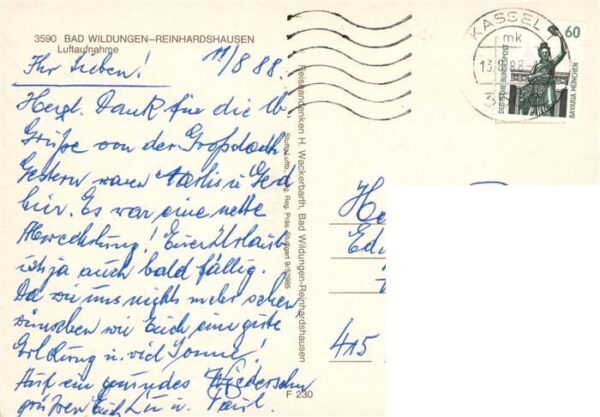 3590 BAD WILDUNGEN–REINHARDSHAUSEN
Luftaufnahme
11/8 88.
Ihr Lieben!
Herzl. Dank für die lb.
Grüße von der Großdach
Gestern waren u. Gerd
hier. Es war eine nette
Abwechslung! Euer Urlaub
ist ja auch bald fällig.
Da wir uns nicht mehr sehen,
wünschen wir Euch eine gute
Erholung u. viel Sonne!
Auf ein gesundes Wiedersehn
grüßen Euch u. Paul.
Reiseandenken H. Wackerbarth, Bad Wildungen-Reinhardshausen
Reg. Präs. Stuttgart
F 230
KASSEL
mk
13.8.88
60
DEUTSCHE BUNDESPOST
BAVARIA MÜNCHEN
He
Ed
415